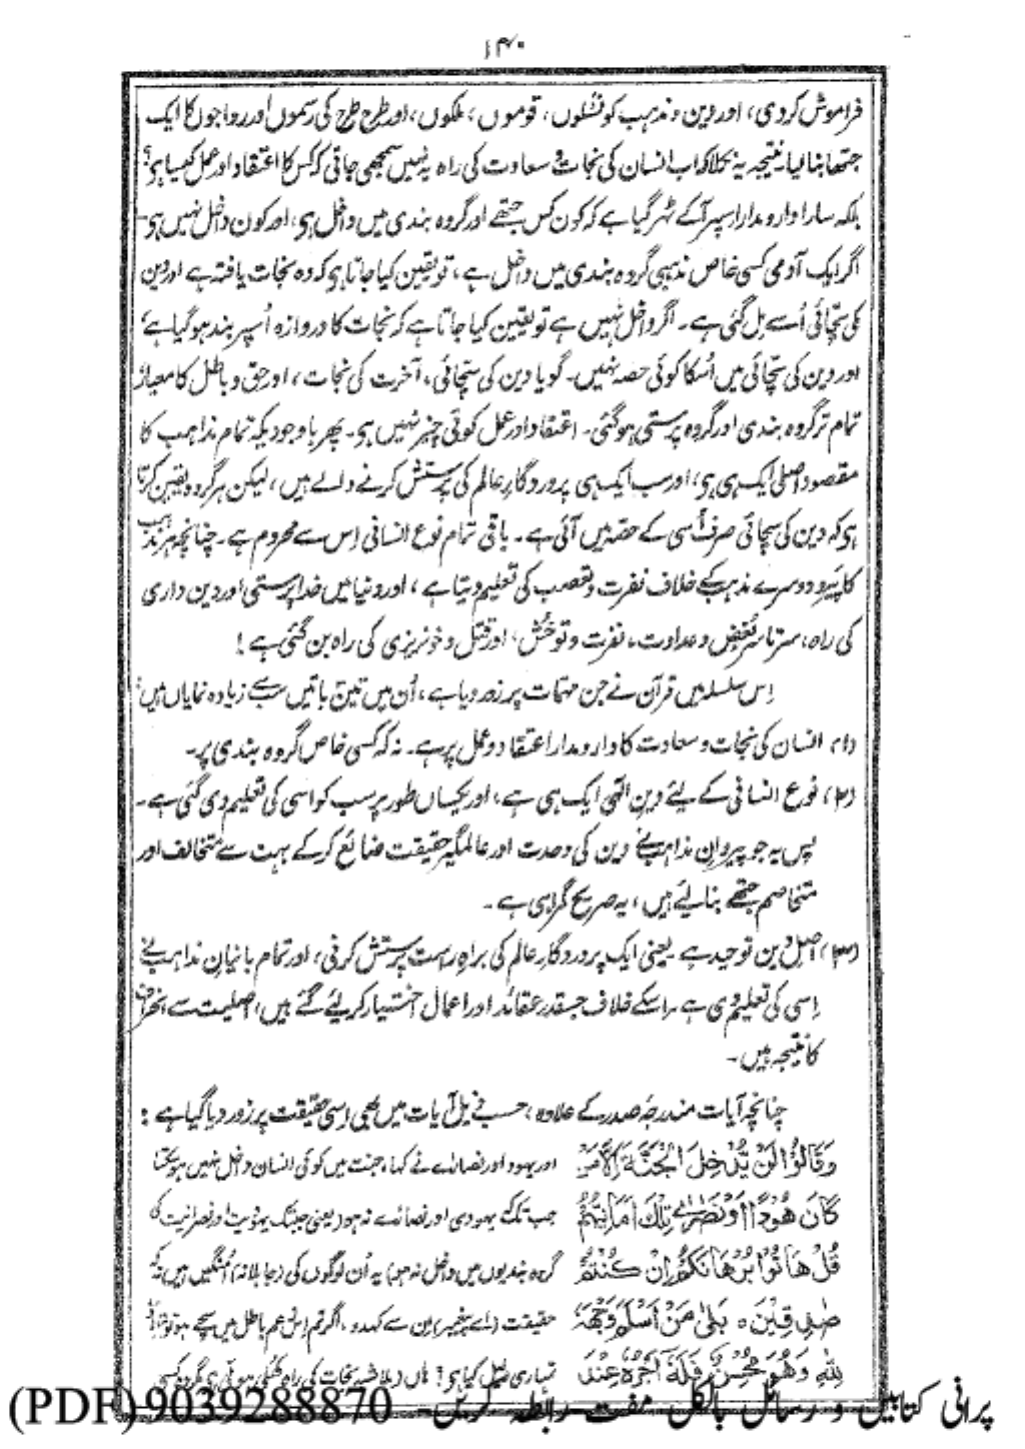 ۱۴۰
فراموش کردی، اور دین و مذہب کو نسلوں، قوموں، ملکوں، اور طرح طرح کی رسموں اور رواجوں کا ایک
جتھا بنا لیا۔ نتیجہ یہ نکلا کہ اب انسان کی نجات و سعادت کی راہ یہ نہیں سمجھی جاتی کہ کس کا اعتقاد اور عمل کیسا ہو؟
بلکہ سارا دار و مدار اسپر آکے ٹھہر گیا ہے کہ کون کس جتھے اور گروہ بندی میں داخل ہی، اور کون داخل نہیں ہی۔
اگر ایک آدمی کسی خاص مذہبی گروہ بندی میں داخل ہے، تو یقین کیا جاتا ہی کہ وہ نجات یافتہ ہے اور دین
کی سچائی اُسے مل گئی ہے۔ اگر داخل نہیں ہے تو یقین کیا جاتا ہے کہ نجات کا دروازہ اُسپر بند ہوگیا ہے
اور دین کی سچائی میں اُسکا کوئی حصہ نہیں۔ گویا دین کی سچائی، آخرت کی نجات، اور حق و باطل کا معیار
تمام تر گروہ بندی اور گروہ پرستی ہوگئی۔ اعتقاد اور عمل کوئی چیز نہیں ہی۔ پھر باوجودیکہ تمام مذاہب کا
مقصود اصلی ایک ہی ہی، اور سب ایک ہی پروردگارِ عالم کی پرستش کرنے والے ہیں، لیکن ہر گروہ یقین کرتا
ہی کہ دین کی سچائی صرف اُسی کے حصہ میں آئی ہے۔ باقی تمام نوع انسانی اِس سے محروم ہے۔ چنانچہ ہر مذہب
کا پیرو دوسرے مذہب کے خلاف نفرت و تعصب کی تعلیم دیتا ہے، اور دنیا میں خدا پرستی اور دین داری
کی راہ، سرتا سر بُغض و عداوت، نفرت و توحّش، اور قتل و خونریزی کی راہ بن گئی ہے!
اِس سلسلہ میں قرآن نے جن مہمات پر زور دیا ہے، اُن میں تین باتیں سب سے زیادہ نمایاں ہیں:
(۱) انسان کی نجات و سعادت کا دار و مدار اعتقاد و عمل پر ہے۔ نہ کہ کسی خاص گروہ بندی پر۔
(۲) نوع انسانی کے لیئے دینِ الٰہی ایک ہی ہے، اور یکساں طور پر سب کو اسی کی تعلیم دی گئی ہے۔
پس یہ جو پیروانِ مذاہب نے دین کی وحدت اور عالمگیر حقیقت ضائع کرکے بہت سے متخالف اور
متخاصم جتھے بنا لیئے ہیں، یہ صریح گمراہی ہے۔
(۳) اصل دین توحید ہے یعنی ایک پروردگارِ عالم کی براہِ راست پرستش کرنی، اور تمام بانیانِ مذاہب نے
اِسی کی تعلیم دی ہے۔ اسکے خلاف جسقدر عقائد اور اعمال اختیار کر لیئے گئے ہیں، اصلیت سے انحراف
کا نتیجہ ہیں۔
چنانچہ آیات مندرجۂ صدر کے علاوہ، حسب ذیل آیات میں بھی اِسی حقیقت پر زور دیا گیا ہے:
وَقَالُوْا لَنْ یَّدْخِلَ الْجَنَّةَ اِلَّا مَنْ اور یہود اور نصاریٰ نے کہا، جنت میں کوئی انسان داخل نہیں ہو سکتا
كَانَ هُوْدًا اَوْ نَصٰرٰى تِلْكَ اَمَانِیُّهُمْ جب تک کہ یہودی اور نصاریٰ نہ ہو (یعنی جبتک یہودیت اور نصرانیت کی
قُلْ هَاتُوْا بُرْهَانَكُمْ اِنْ كُنْتُمْ گروہ بندیوں میں داخل نہ ہو) یہ اُن لوگوں کی (جاہلانہ) اُمنگیں ہیں نہ کہ
صٰدِقِیْنَ۔ بَلٰى مَنْ اَسْلَمَ وَجْهَهٗ حقیقت (اے پیغمبر) اِن سے کہدو، اگر تم اپنے زعم باطل میں سچے ہو تو بتاؤ
لِلّٰهِ وَهُوَ مُحْسِنٌ فَلَهٗ اَجْرُهٗ عِنْدَ تمہاری دلیل کیا ہی؟ ہاں (بلاشبہ نجات کی راہ کھلی ہوئی ہی مگر وہ کسی
پرانی کتابیں و رسائل بالکل مفت رابطہ کریں۔ 9039288870 (PDF)